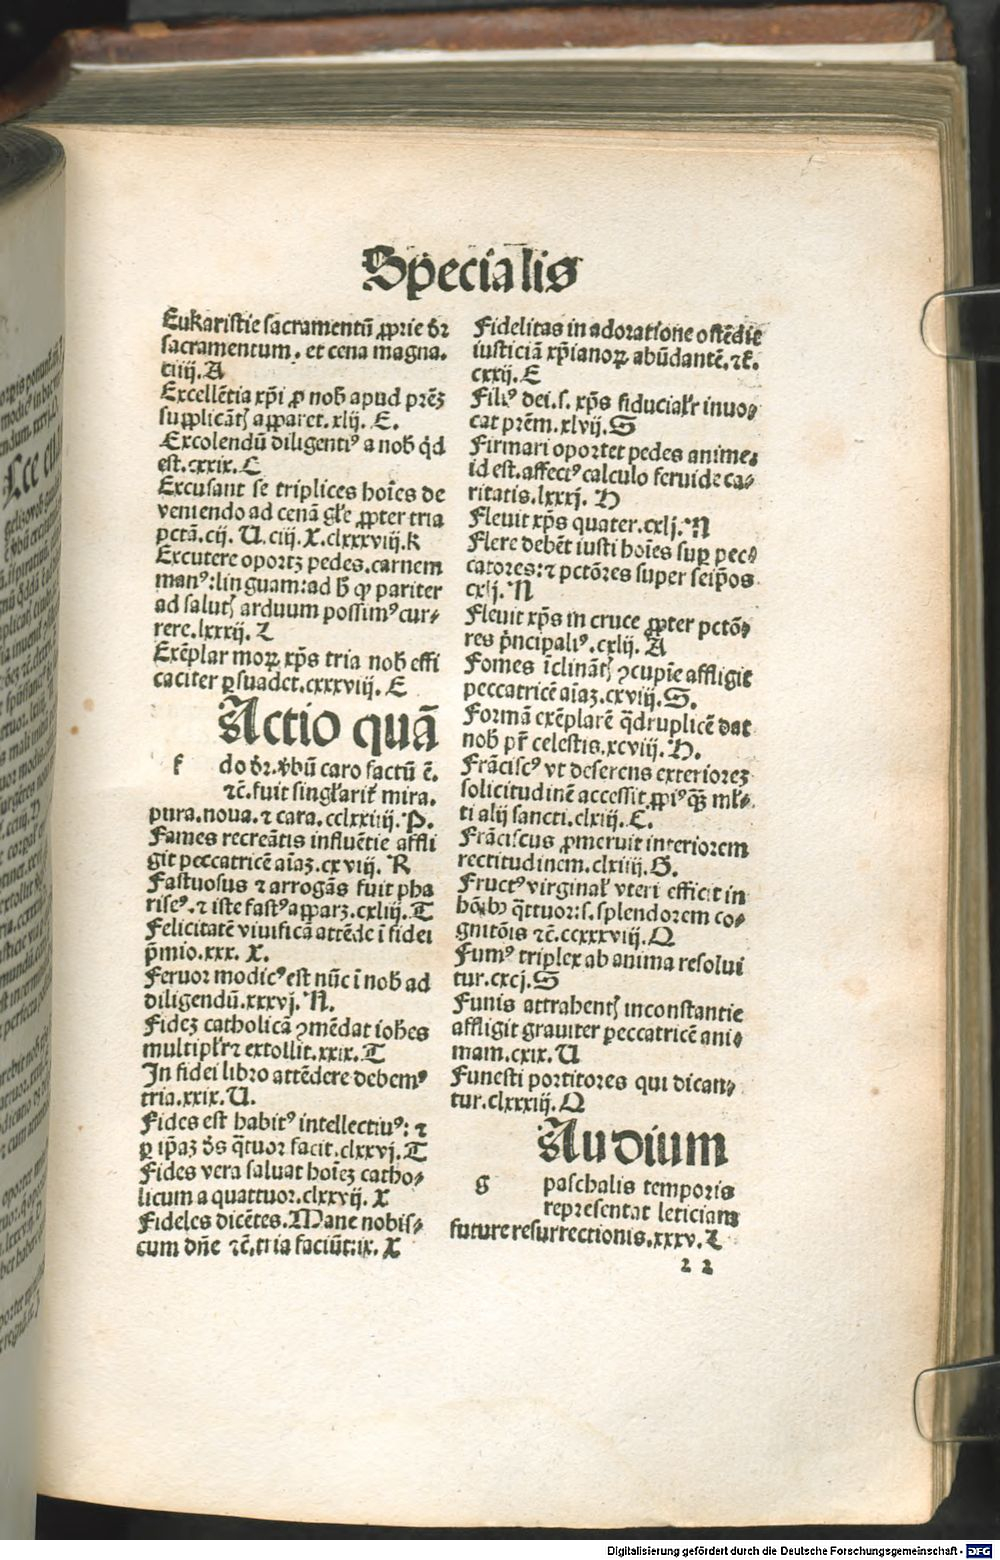 Specialis
Eukaristie sacramentū ꝓprie dr̄
sacramentum. et cena magna.
ciiij. A
Excellētia xp̄i ꝓ nob̄ apud prēꝫ
supplicātꝭ apparet. xlij. E.
Excolendū diligentiꝰ a nob̄ qd̄
est. cxxix. C
Excusant se triplices hoīes de
veniendo ad cenā gl̄e ꝓpter tria
pctā. cij. U. ciij. X. clxxxviij. K
Excutere oportꝫ pedes. carnem
manꝰ: linguam: ad h̄ qꝫ pariter
ad salutꝭ arduum possimꝰ cur⸗
rere. lxxxij. Z
Exēplar moꝝ xp̄s tria nob̄ effi
caciter ꝑsuadet. cxxxviij. E
Actio quā
f do dr̄. v̄bū caro factū ē.
⁊c̄. fuit singl̄arit̄ mira.
pura. noua. ⁊ cara. cclxxiiij. P.
Fames recreātis influētie affli
git peccatricē aīaꝫ. cxviij. R
Fastuosus ⁊ arrogās fuit pha
riseꝰ. ⁊ iste fastꝰ apparꝫ. cxliij. T
Felicitatē viuificā attēde ī fidei
p̄mio. xxx. X.
Feruor modicꝰ est nūc ī nob̄ ad
diligendū. xxxvj. N.
Fideꝫ catholicā ꝯmēdat ioh̄es
multipl̄r ⁊ extollit. xxix. T
In fidei libro attēdere debemꝰ
tria. xxix. U.
Fides est habitꝰ intellectiuꝰ: ⁊
ꝑ ip̄aꝫ d̄s q̄tuor facit. clxxvj. T
Fides vera saluat hoīeꝫ catho⸗
licum a quattuor. clxxvij. X
Fideles dicētes. Mane nobis⸗
cum dn̄e ⁊c̄. tria faciūt: ix. X
Fidelitas in adoratione ostēdit
iusticiā xp̄ianoꝝ abūdantē. ⁊c̄.
cxxij. E
Filiꝰ dei. s. xp̄s fiducial̄r inuo⸗
cat prēm. xlvij. S
Firmari oportet pedes anime⸗
id est. affectꝰ calculo feruide ca⸗
ritatis. lxxxj. H
Fleuit xp̄s quater. cxlj. N
Flere debēt iusti hoīes suꝑ pec⸗
catores: ⁊ pctōres super seip̄os
cxlj. N
Fleuit xp̄s in cruce ꝓpter pctō⸗
res p̄ncipaliꝰ. cxlij. A
Fomes īclinātꝭ ꝯcupīe affligit
peccatricē aīaꝫ. cxviij. S.
Formā exēplarē q̄druplicē dat
nob̄ pr̄ celestis. xcviij. H.
Frāciscꝰ vt deserens exterioreꝫ
solicitudinē accessit ꝓpiꝰ qꝫ ml̄⸗
ti alij sancti. clxiij. C.
Frāciscus ꝓmeruit interiorem
rectitudinem. clxiiij. G.
Fructꝰ virginal̄ vteri efficit in
hōībꝰ q̄ttuor: s. splendorem co⸗
gnitōis ⁊c̄. ccxxxviij. Q
Fumꝰ triplex ab anima resolui
tur. cxcj. S
Funis attrahentꝭ inconstantie
affligit grauiter peccatricē ani⸗
mam. cxix. U
Funesti portitores qui dican⸗
tur. clxxxiij. Q
Audium
g paschalis temporis
representat leticiam
future resurrectionis. xxxv. Z
2 2
Digitalisierung gefördert durch die Deutsche Forschungsgemeinschaft - DFG